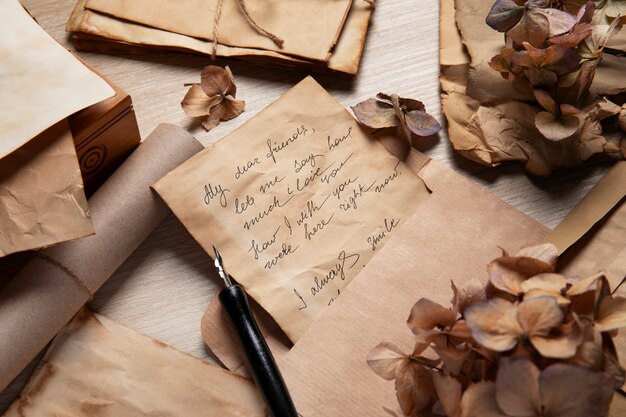 My dear friends,
lets me say how
much i love you
how I wish you
were here right now.
I always smile